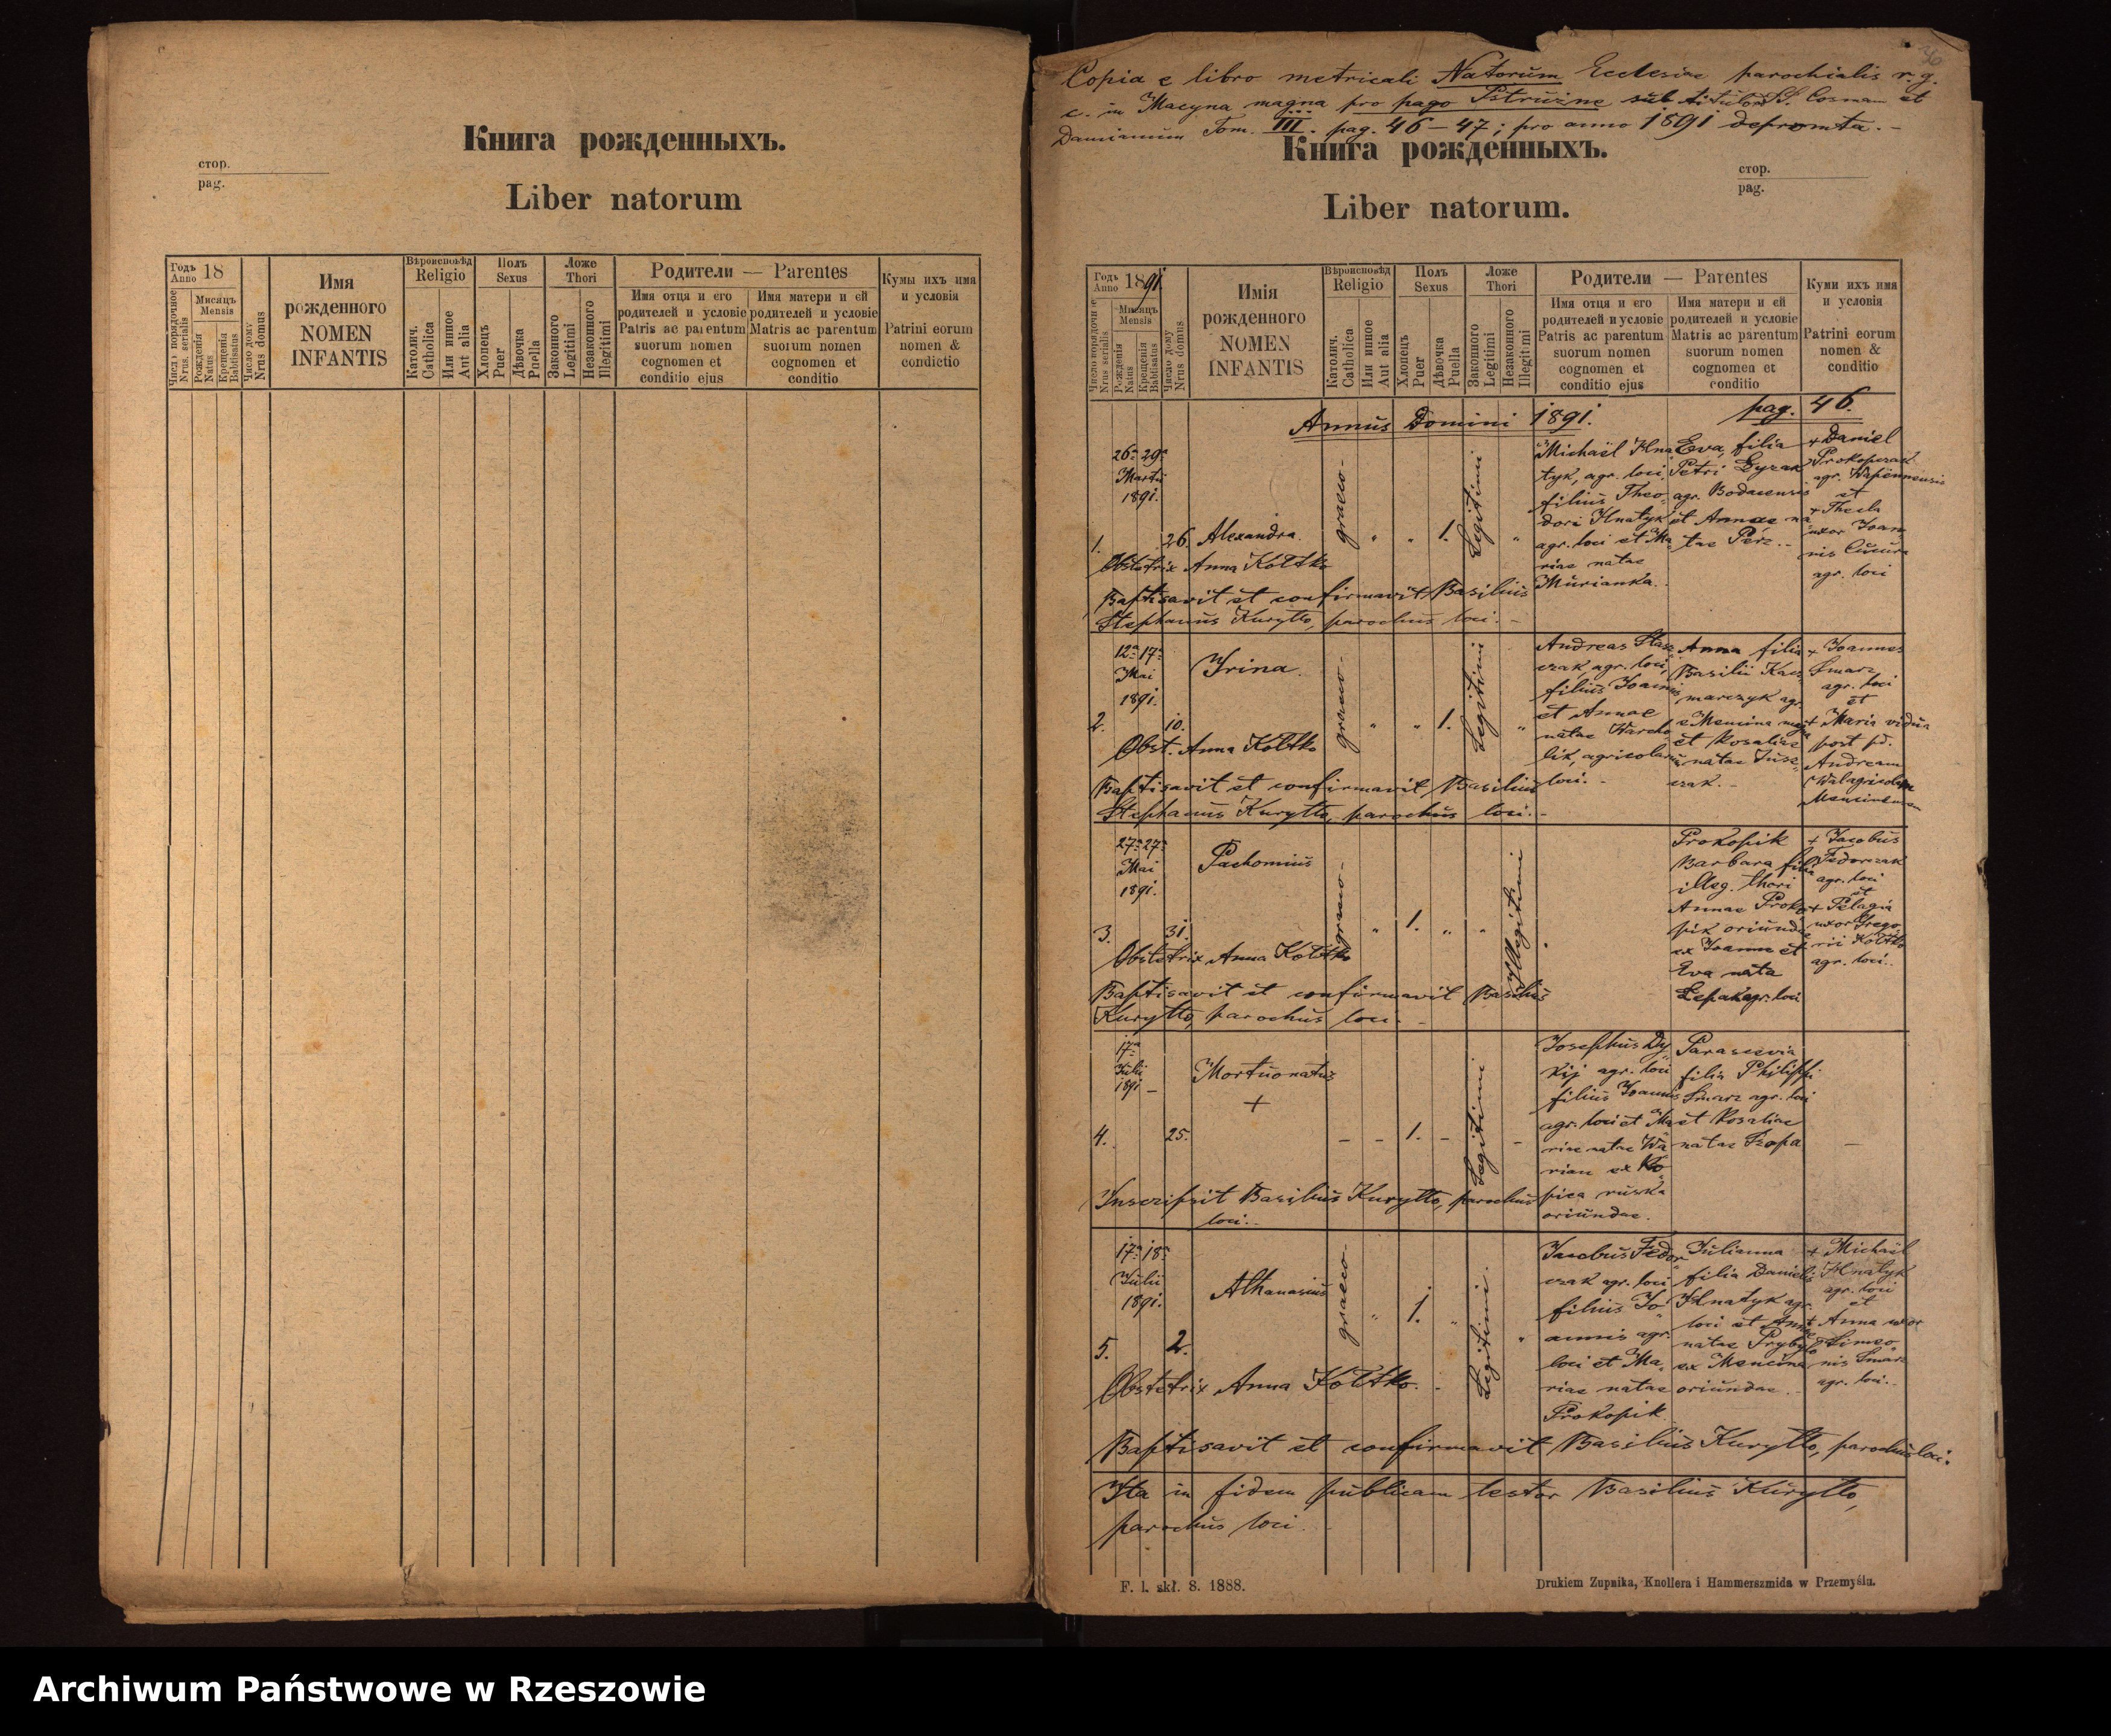 Книга рожденныхъ.
стор.
pag.
Liber natorum
Годъ Anno 18
Число порядочное Nrus. serialis
Мисяцъ Mensis
Рожденія Natus
Крещенія Babtisatus
Число дому Nrus domus
Имя рожденного NOMEN INFANTIS
Вѣроисповѣд Religio
Католич. Catholica
Или инное Aut alia
Полъ Sexus
Хлопецъ Puer
Дѣвочка Puella
Ложе Thori
Законного Legitimi
Незаконного Illegitimi
Родители — Parentes
Имя отця и его родителей и условіе Patris ac parentum suorum nomen cognomen et conditio ejus
Имя матери и ей родителей и условіе Matris ac parentum suorum nomen cognomen et conditio
Кумы ихъ имя и условія Patrini eorum nomen & condictio
36
Copia e libro metricali Natorum Ecclesiae parochialis r. g.
c. in Macyna magna pro pago Pstrużne sub titulo SS. Cosmam et
Damianum Tom. III. pag. 46–47; pro anno 1891 depromta.–
Книга рожденныхъ.
стор.
pag.
Liber natorum.
Годъ Anno 1891.
Число порядочное Nrus serialis
Мисяцъ Mensis
Рожденія Natus
Крещенія Babtisatus
Число дому Nrus domus
Имія рожденного NOMEN INFANTIS
Вѣроисповѣд Religio
Католич. Catholica
Или инное Aut alia
Полъ Sexus
Хлопецъ Puer
Дѣвочка Puella
Ложе Thori
Законного Legitimi
Незаконного Illegitimi
Родители — Parentes
Имя отця и его родителей и условіе Patris ac parentum suorum nomen cognomen et conditio ejus
Имя матери и ей родителей и условіе Matris ac parentum suorum nomen cognomen et conditio
Куми ихъ имя и условія Patrini eorum nomen & conditio
Annus Domini 1891. pag. 46.
1. 26a 29a Martii 1891. 26. Alexandra. graeco- „ „ 1. Legitimi „
Michaël Hnatyk, agr. loci, filius Theodori Hnatyk agr. loci et Mariae natae Murianka.
Eva, filia Petri Dyzak agr. Bodacensis et Annae natae Perz.–
+ Daniel Prokopczak agr. Wapiennensis et + Thecla uxor Joannis agr. loci
Obstetrix Anna Kołtko
Baptisavit et confirmavit Basilius
Stephanus Kuryłło, parochus loci.–
2. 12a 17a Mai 1891. 10. Irina. graeco- „ „ 1. Legitimi „
Andreas Staszczak, agr. loci, filius Joannis et Annae natae Warcholik, agricolarum loci.–
Anna filia Basilii Kaczmarczyk agr. e Mencina magna et Rosaliae natae Juszczak.–
+ Joannes Smarz agr. loci et + Maria vidua post pd. Andream
Obst. Anna Kołtko
Baptisavit et confirmavit Basilius
Stephanus Kuryłło, parochus loci.–
3. 27a 27a Mai 1891. 31. Pachomius graeco- „ 1. „ „ Illegitimi
Prokopik Barbara filia illeg. thori Annae Prokopik oriundae ex Joanne et Eva nata Lepak agr. loci
+ Jacobus Fedorczak agr. loci et + Pelagia uxor Gregorii Kołtko agr. loci.
Obstetrix Anna Kołtko
Baptisavit et confirmavit Basilius
Kuryłło, parochus loci.–
4. 17a Julii 1891 – 25. Mortuonatus + – – 1. – Legitimi –
Josephus Dykij agr. loci filius Joannis agr. loci et Mariae natae Warian ex Ropica ruska oriundae.
Parascevia filia Philippi Smarz agr. loci et Rosaliae natae Szopa
–
Inscripsit Basilius Kuryłło, parochus
loci.
5. 17a 18a Julii 1891. 2. Athanasius graeco- „ 1. „ Legitimi. „
Jacobus Fedorczak agr. loci filius Joannis agr. loci et Mariae natae Prokopik
Julianna filia Danielis Hnatyk agr. loci et Annae natae Prybyło ex Mencina oriundae.–
+ Michaël Hnatyk agr. loci et + Anna uxor Simeonis Smarz agr. loci.
Obstetrix Anna Kołtko.
Baptisavit et confirmavit Basilius Kuryłło, parochus loci.
Ita in fidem publicam testor Basilius Kuryłło,
parochus loci.
F. l. skł. 8. 1888.
Drukiem Zupnika, Knollera i Hammerszmida w Przemyślu.
Archiwum Państwowe w Rzeszowie